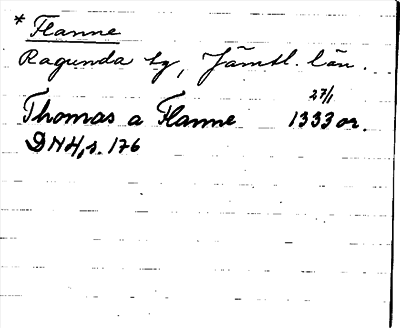 * Flanne
Ragunda tg, Jämtl. län.
27/1
Thomas a Flanne 1333 or.
DN 4, s. 176